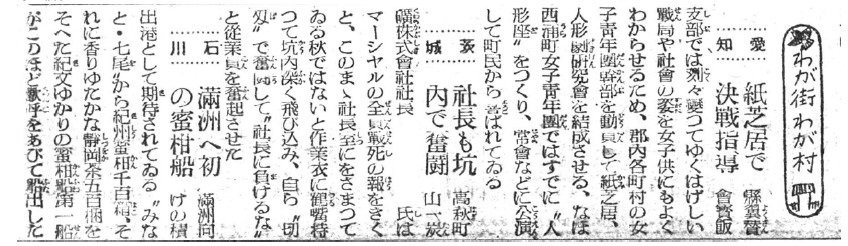 わが街わが村
愛知
紙芝居で
決戦指導
縣翼賛
會寳飯
支部では刻々變つてゆくはげしい
戰局や社會の姿を女子供にもよく
わからせるため、郡内各町村の女
子青年團幹部を動員して紙芝居、
人形劇研究會を結成させる、なほ
西浦町女子青年團ではすでに“人
形座”をつくり、常會などに公演
して町民から喜ばれてゐる
茨城
社長も坑
内で奮闘
高萩町
山一炭
礦株式會社社長　　氏は
マーシヤルの全員戰死の報をきく
と、このまゝ社長室にをさまつて
ゐる秋ではないと作業衣に鶴嘴持
つて坑内深く飛び込み、自ら“切
羽”で奮闘して“社長に負けるな”
と從業員を奮起させた
石川
滿洲へ初
の蜜柑船
滿洲向
けの積
出港として期待されてゐる“みな
と・七尾”から紀州蜜柑千百箱、そ
れに香りゆたかな静岡茶五百梱を
そへた紀文ゆかりの蜜柑船第一船
がこのほど歡呼をあびて船出した